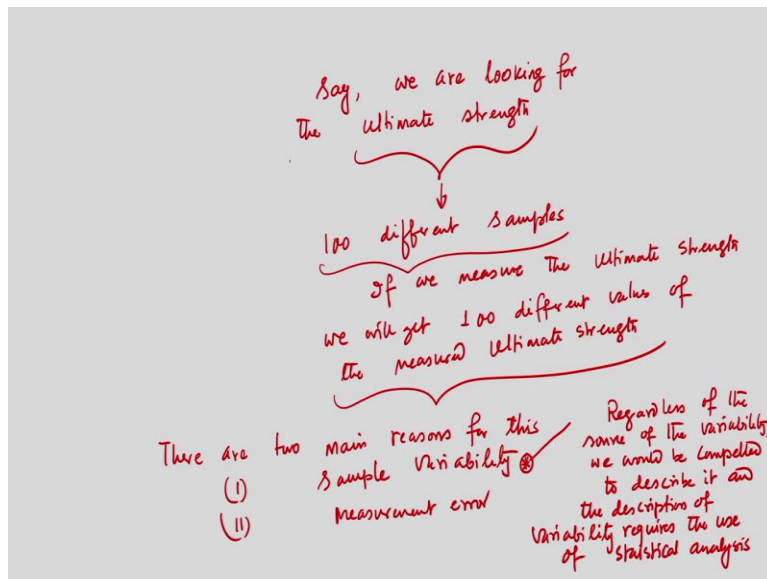 Say, we are looking for
the ultimate strength
100 different samples
If we measure the ultimate strength
we will get 100 different values of
the measured ultimate strength
There are two main reasons for this
(I) Sample Variability
(II) Measurement error
Regardless of the
source of the variability,
we would be compelled
to describe it and
the description of
variability requires the use
of statistical analysis